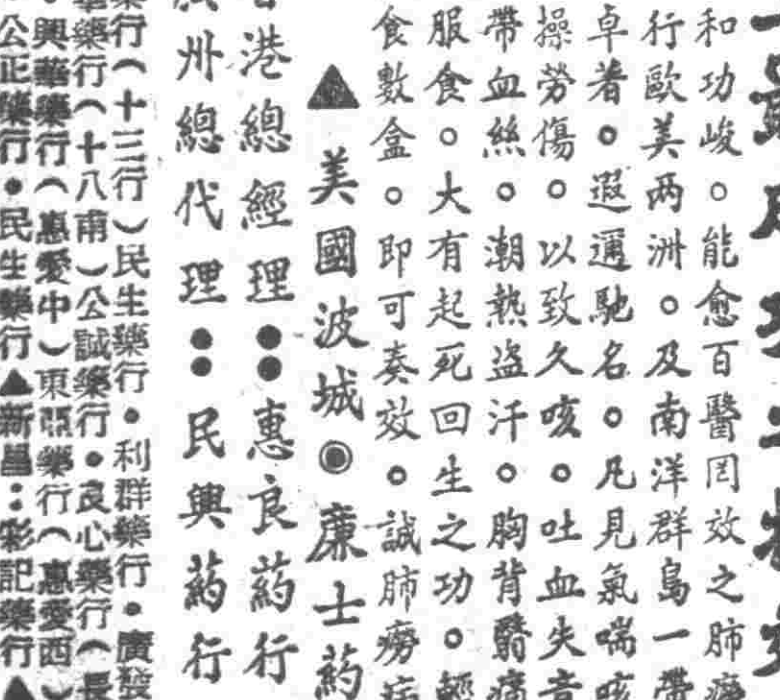 和功峻。能愈百醫罔效之肺
行歐美两洲。及南洋群島一帶
卓著。遐邇馳名。凡見氣喘咳
操勞傷。以致久咳。吐血失音
帶血絲。潮熱盜汗。胸背翳痛
服食。大有起死回生之功。輕
食數盒。即可奏效。誠肺癆病
▲美國波城◉廉士葯
港總經理：惠良葯行
州總代理：民興葯行
藥行（十三行）民生藥行●利群藥行●廣發
藥行（十八甫）公誠藥行●良心藥行（長
興華藥行（惠愛中）東亞藥行（惠愛西）
公正藥行●民生藥行▲新昌：彩記藥行▲